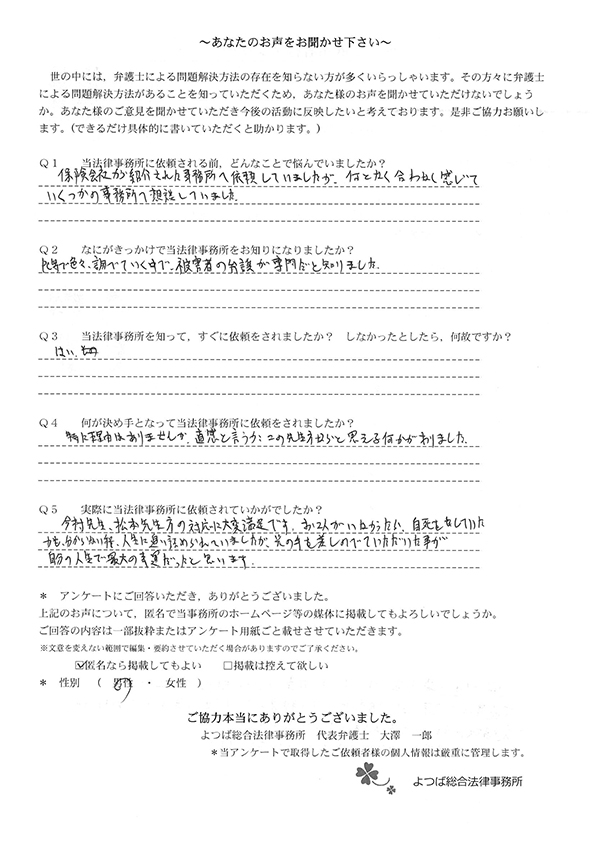 ～あなたのお声をお聞かせ下さい～
世の中には，弁護士による問題解決方法の存在を知らない方が多くいらっしゃいます。その方々に弁護士
による問題解決方法があることを知っていただくため，あなた様のお声を聞かせていただけないでしょう
か。あなた様のご意見を聞かせていただき今後の活動に反映したいと考えております。是非ご協力お願いし
ます。(できるだけ具体的に書いていただくと助かります。)
Ｑ１　当法律事務所に依頼される前，どんなことで悩んでいましたか？
保険会社から紹介された事務所へ依頼していましたが、何となく合わなく感じて
いくつかの事務所へ相談していました。
Ｑ２　なにがきっかけで当法律事務所をお知りになりましたか？
色々、調べていく中で、被害者の弁護が専門だと知りました。
Ｑ３　当法律事務所を知って，すぐに依頼をされましたか？　しなかったとしたら，何故ですか？
はい、
Ｑ４　何が決め手となって当法律事務所に依頼をされましたか？
特に理由はありませんが、直感と言うか、この先生方ならと思える何かがありました。
Ｑ５　実際に当法律事務所に依頼されていかがでしたか？
今村先生、松本先生方の対応に大変満足です。お２人がいなかったら、自死をしていた
かも、分からない程、人生に追い詰められていましたが、光の手を差しのべていただいた事が
自分の人生で最大の幸運だったと思います。
＊　アンケートにご回答いただき，ありがとうございました。
上記のお声について，匿名で当事務所のホームページ等の媒体に掲載してもよろしいでしょうか。
ご回答の内容は一部抜粋またはアンケート用紙ごと載せさせていただきます。
※文意を変えない範囲で編集・要約させていただく場合がありますのでご了承ください。
☑匿名なら掲載してもよい　□掲載は控えて欲しい
＊　性別　（　男性　・　女性　）
ご協力本当にありがとうございました。
よつば総合法律事務所　代表弁護士　大澤　一郎
＊当アンケートで取得したご依頼者様の個人情報は厳重に管理します。
よつば総合法律事務所